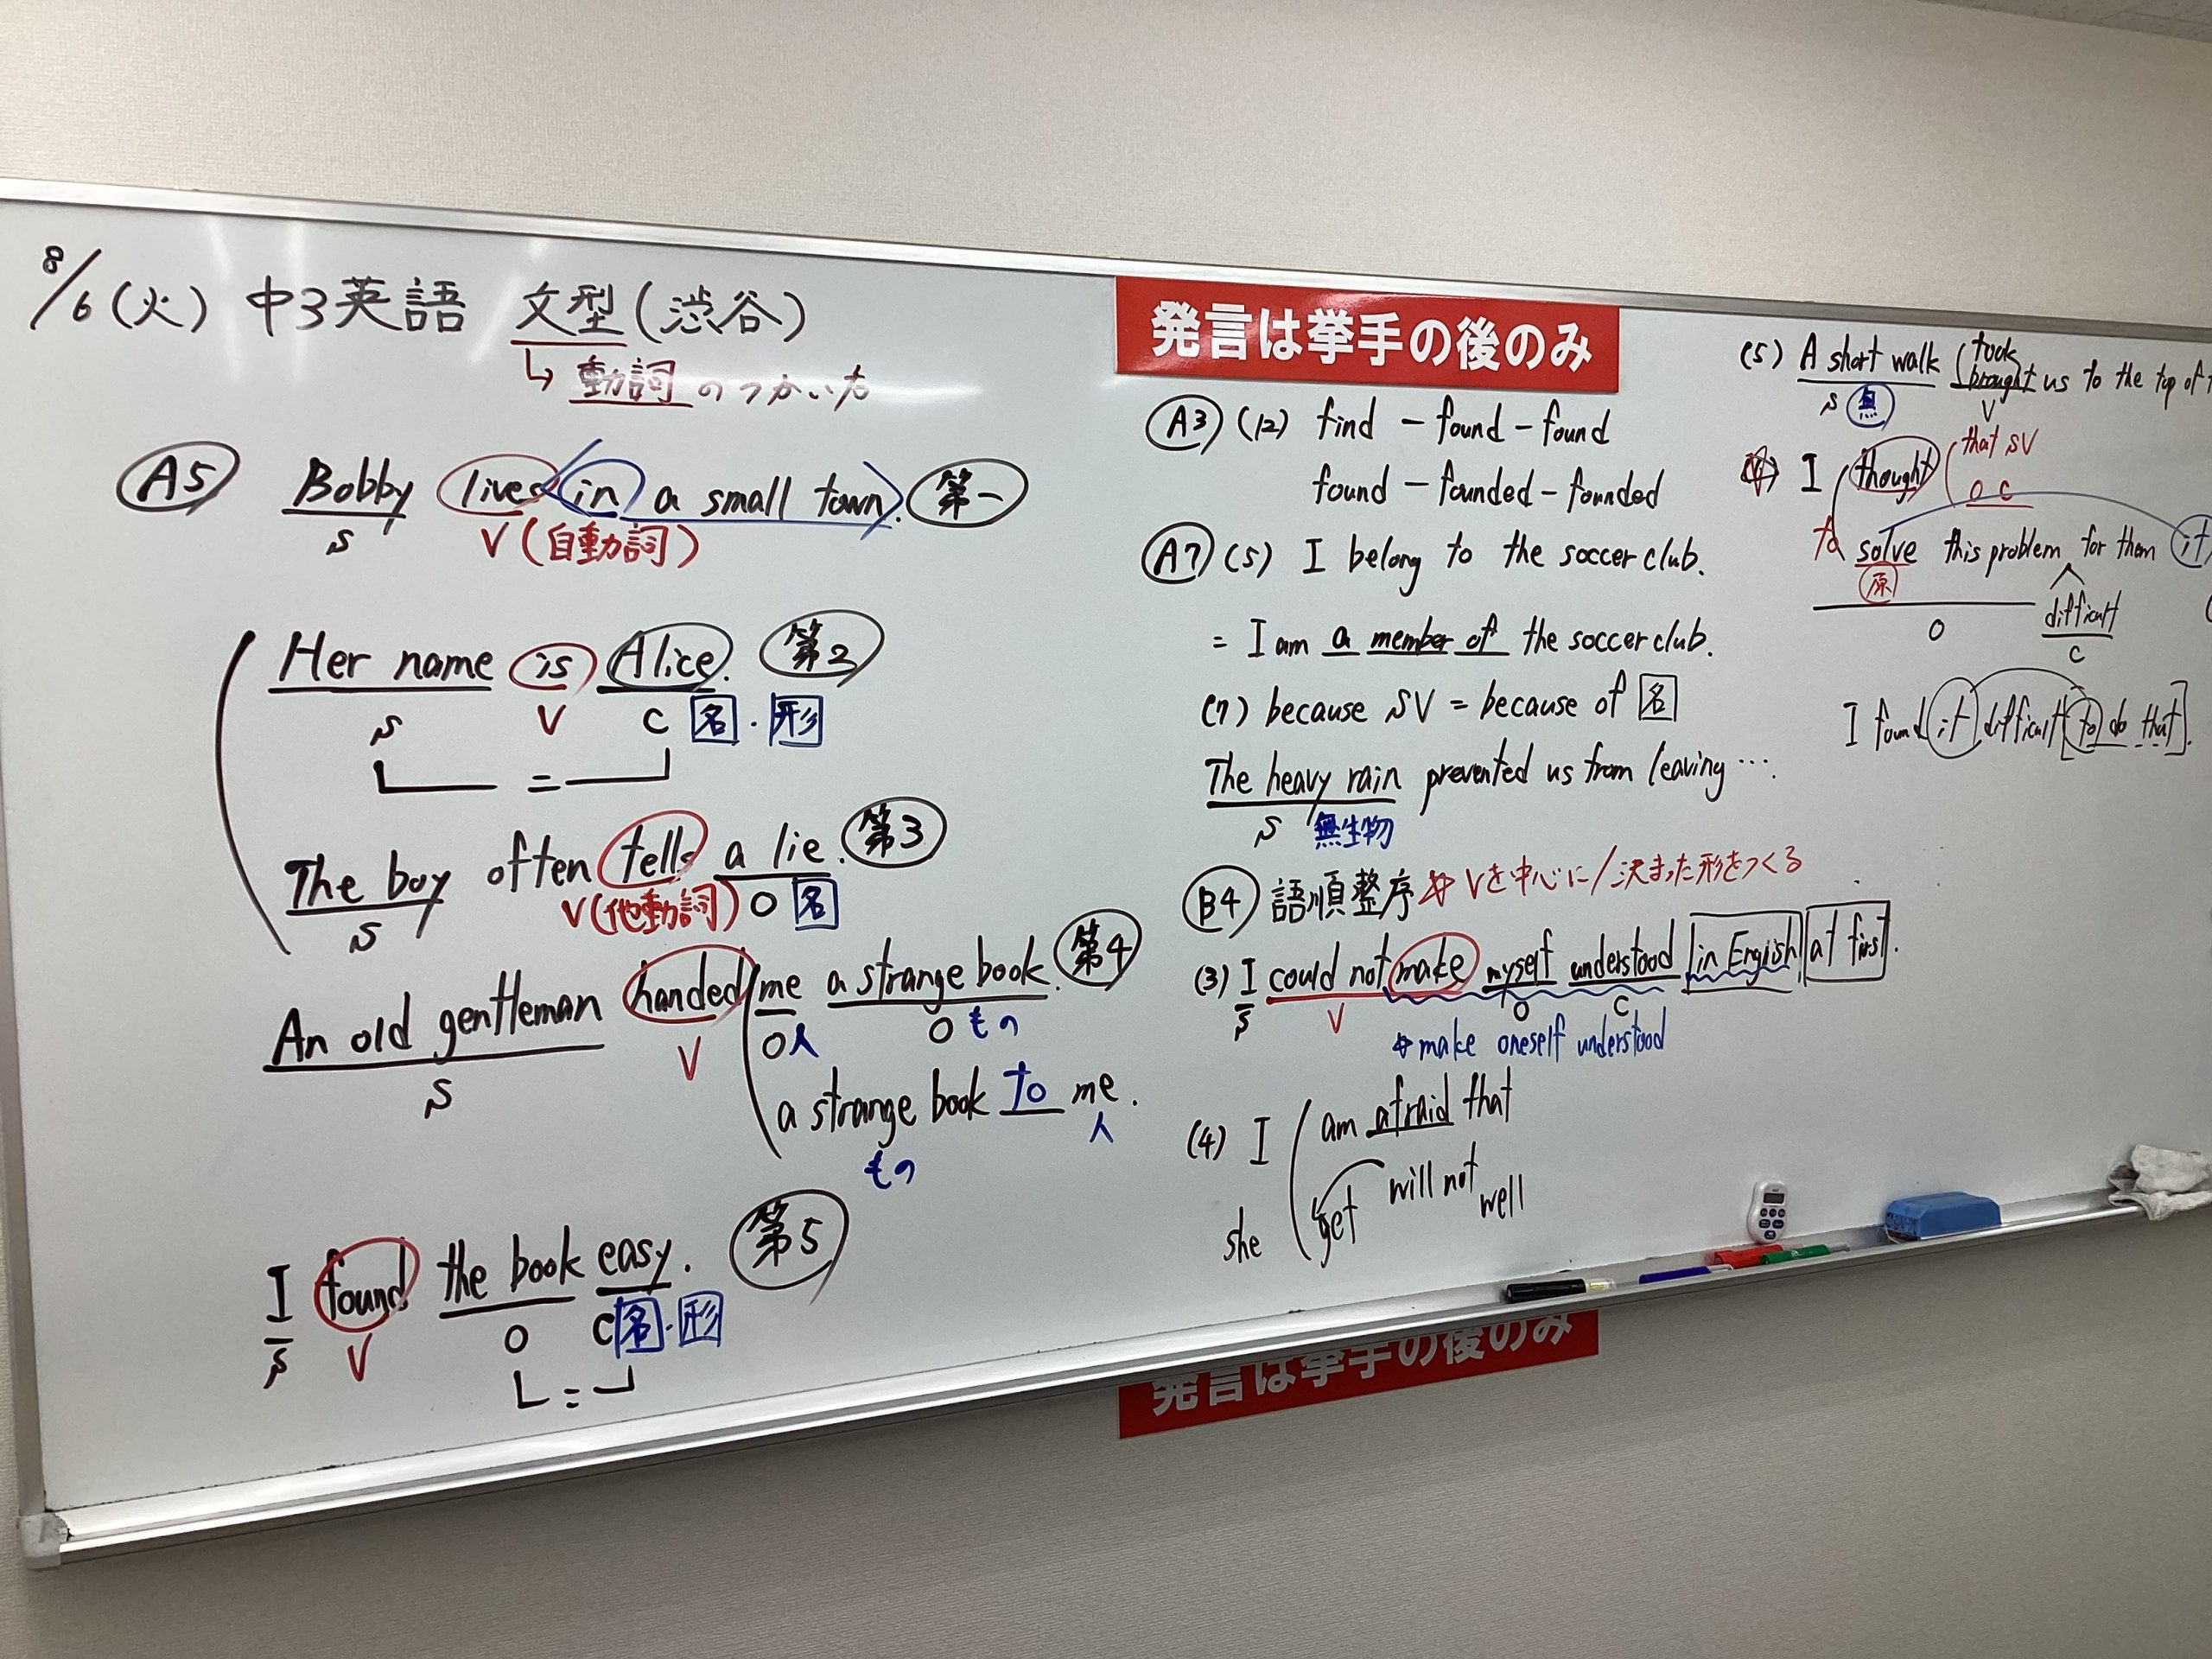 8/6(火) 中3英語 文型(渋谷)
↳ 動詞のつかいかた
A5 Bobby lives <in a small town>. 第一
S V(自動詞)
Her name is Alice. 第2
S V C 名・形
=
The boy often tells a lie. 第3
S V(他動詞) O 名
An old gentleman handed me a strange book. 第4
S V O人 Oもの
a strange book to me.
もの 人
I found the book easy. 第5
S V O C 名・形
=
発言は挙手の後のみ
A3 (12) find - found - found
found - founded - founded
A7 (5) I belong to the soccer club.
= I am a member of the soccer club.
(7) because SV = because of 名
The heavy rain prevented us from leaving ….
S 無生物
B4 語順整序 ☆Vを中心に/決まった形をつくる
(3) I could not make myself understood in Engish at first.
S V O C
☆make oneself understood
(4) I am afraid that
she get will not well
(5) A short walk took
brought us to the top of
S 無 V
I thought that SV
O C
to solve this problem for them it
原 difficult
O C
I found it difficult [to do that].
発言は挙手の後のみ